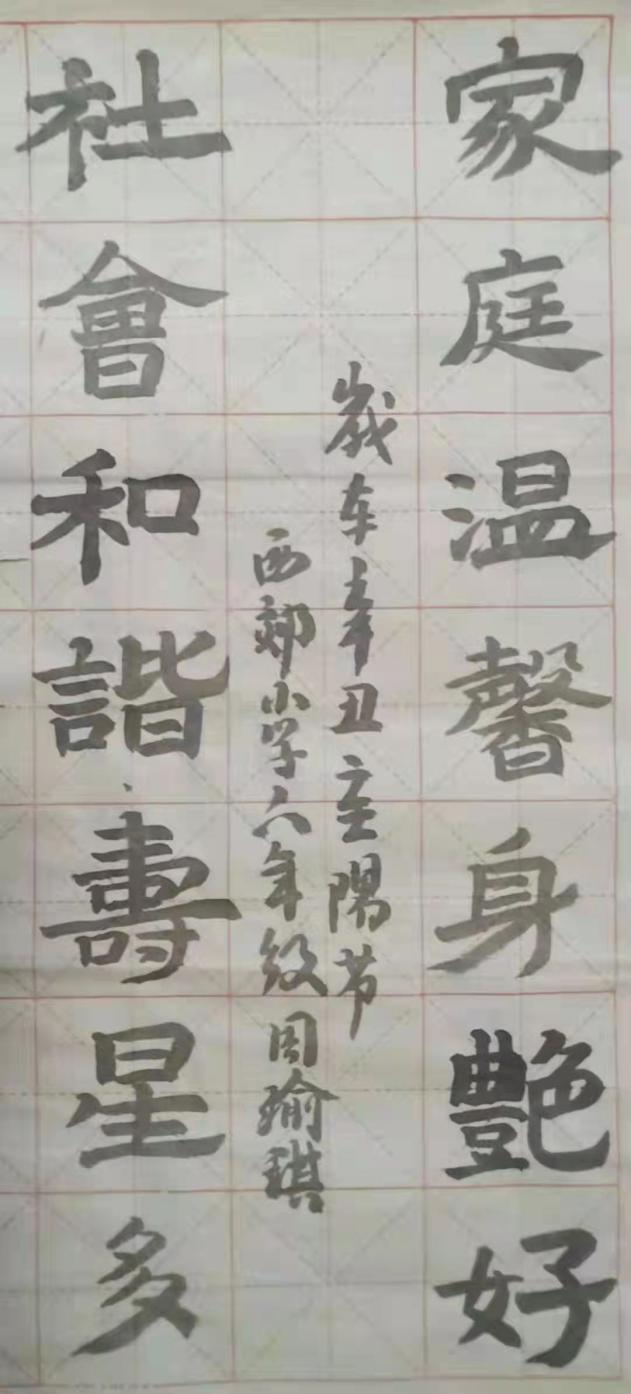 家庭温馨身艷好
歲在辛丑重陽节
西郊小学六年级周瑜琪
社會和諧壽星多